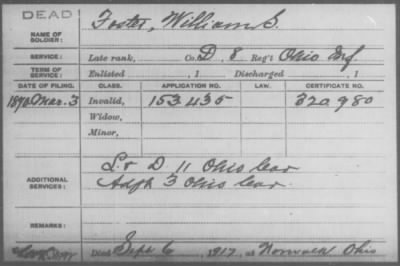 DEAD
NAME OF SOLDIER: Foster, William S.
SERVICE: Late rank, Co. D, 8 Reg't Ohio Inf.
TERM OF SERVICE: Enlisted , 1 Discharged , 1
DATE OF FILING. CLASS. APPLICATION NO. LAW. CERTIFICATE NO.
1890 Mar. 3 Invalid, 153435 320980
Widow,
Minor,
ADDITIONAL SERVICES: D 11 Ohio Cav
3 Ohio Cav.
REMARKS:
Died Sept 6, 1917, at Norwalk Ohio